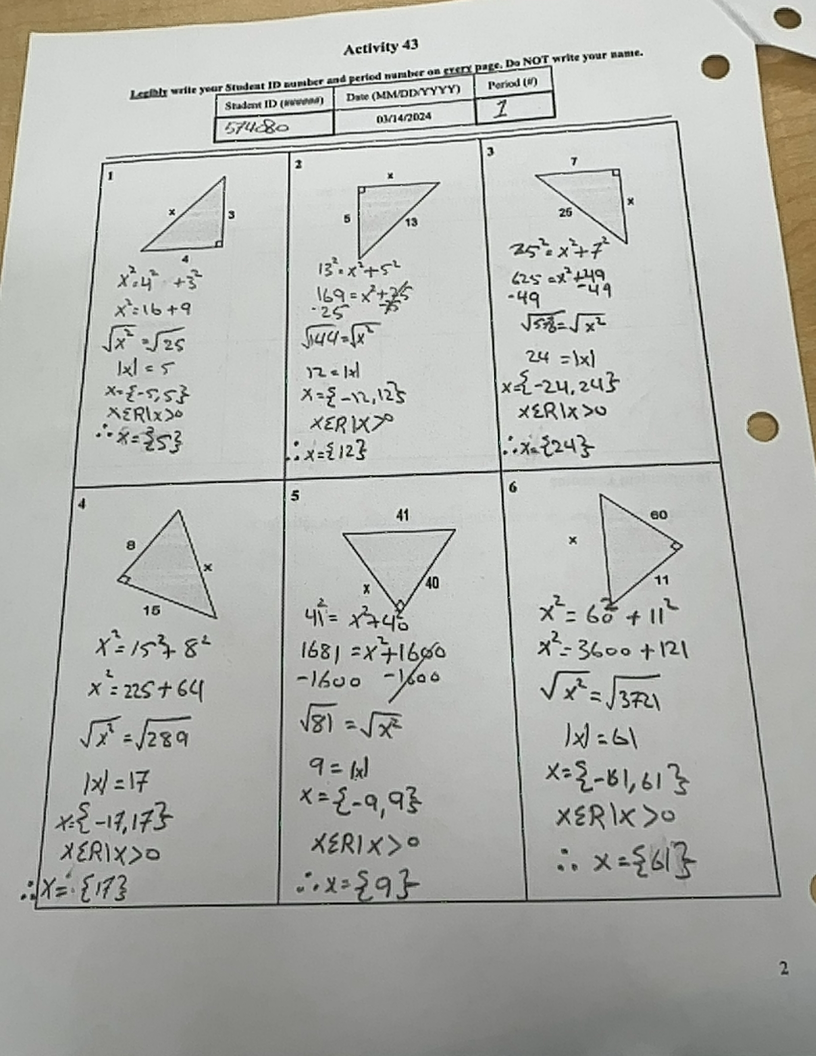 Activity 43
Legibly write your Student ID number and period number on every page. Do NOT write your name.
Student ID (######) Date (MM/DD/YYYY) Period (#)
574080 03/14/2024 1
1
x
3
4
x²=4² +3²
x²=16+9
√x² =√25
|x| = 5
x={-5,5}
xεR|x>0
∴x={5}
2
x
5
13
13²=x²+5²
169=x²+25
-25 -25
√144=√x²
12=|x|
x={-12,12}
xεR|x>0
∴x={12}
3
7
25
x
25²=x²+7²
625=x²+49
-49 -49
√576=√x²
24 =|x|
x={-24,24}
xεR|x>0
∴x={24}
4
8
x
15
x²=15²+8²
x²=225+64
√x²=√289
|x|=17
x={-17,17}
xεR|x>0
∴x={17}
5
41
x
40
41²=x²+40²
1681=x²+1600
-1600 -1600
√81=√x²
9=|x|
x={-9,9}
xεR|x>0
∴x={9}
6
60
x
11
x²=60²+11²
x²=3600+121
√x²=√3721
|x|=61
x={-61,61}
xεR|x>0
∴ x={61}
2